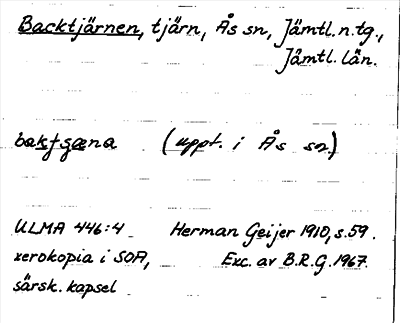 Backtjärnen, tjärn, Ås sn, Jämtl. n. tg.,
Jämtl. län.
(uppt. i Ås sn)
ULMA 446:4 Herman Geijer 1910, s. 59.
xerokopia i SOA, Exc. av B.R.G. 1967.
särsk. kapsel